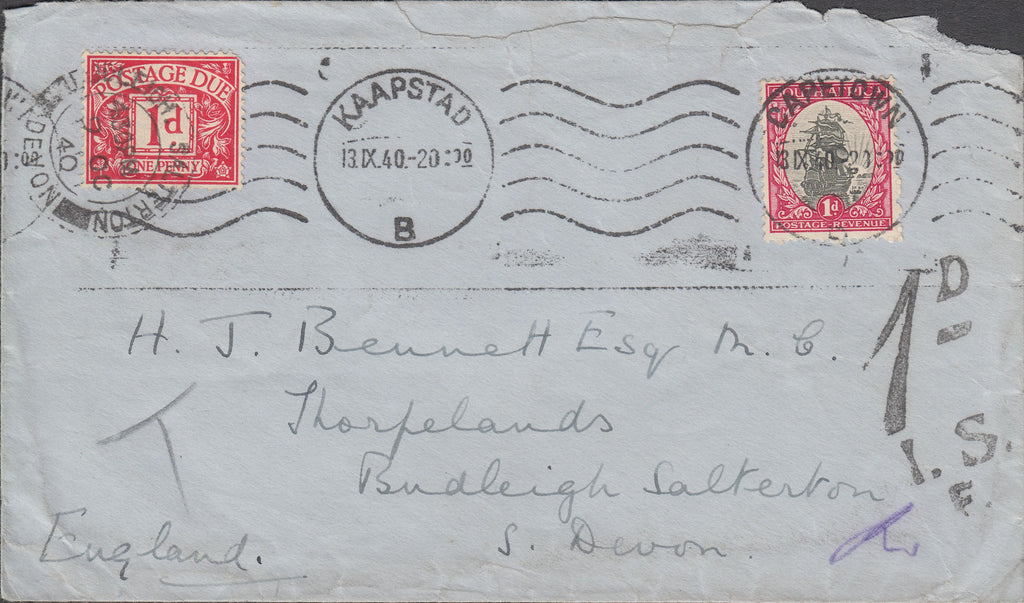 POSTAGE DUE
1d
ONE PENNY
SALTERTON
DEVON
40
KAAPSTAD
13 IX.40.-20
B
CAPETOWN
13 IX 40.-20
1d
POSTAGE-REVENUE
1D
I.S.
H. J. Bennett Esq M. C.
Thorpelands
Budleigh Salterton
S. Devon.
England.
T